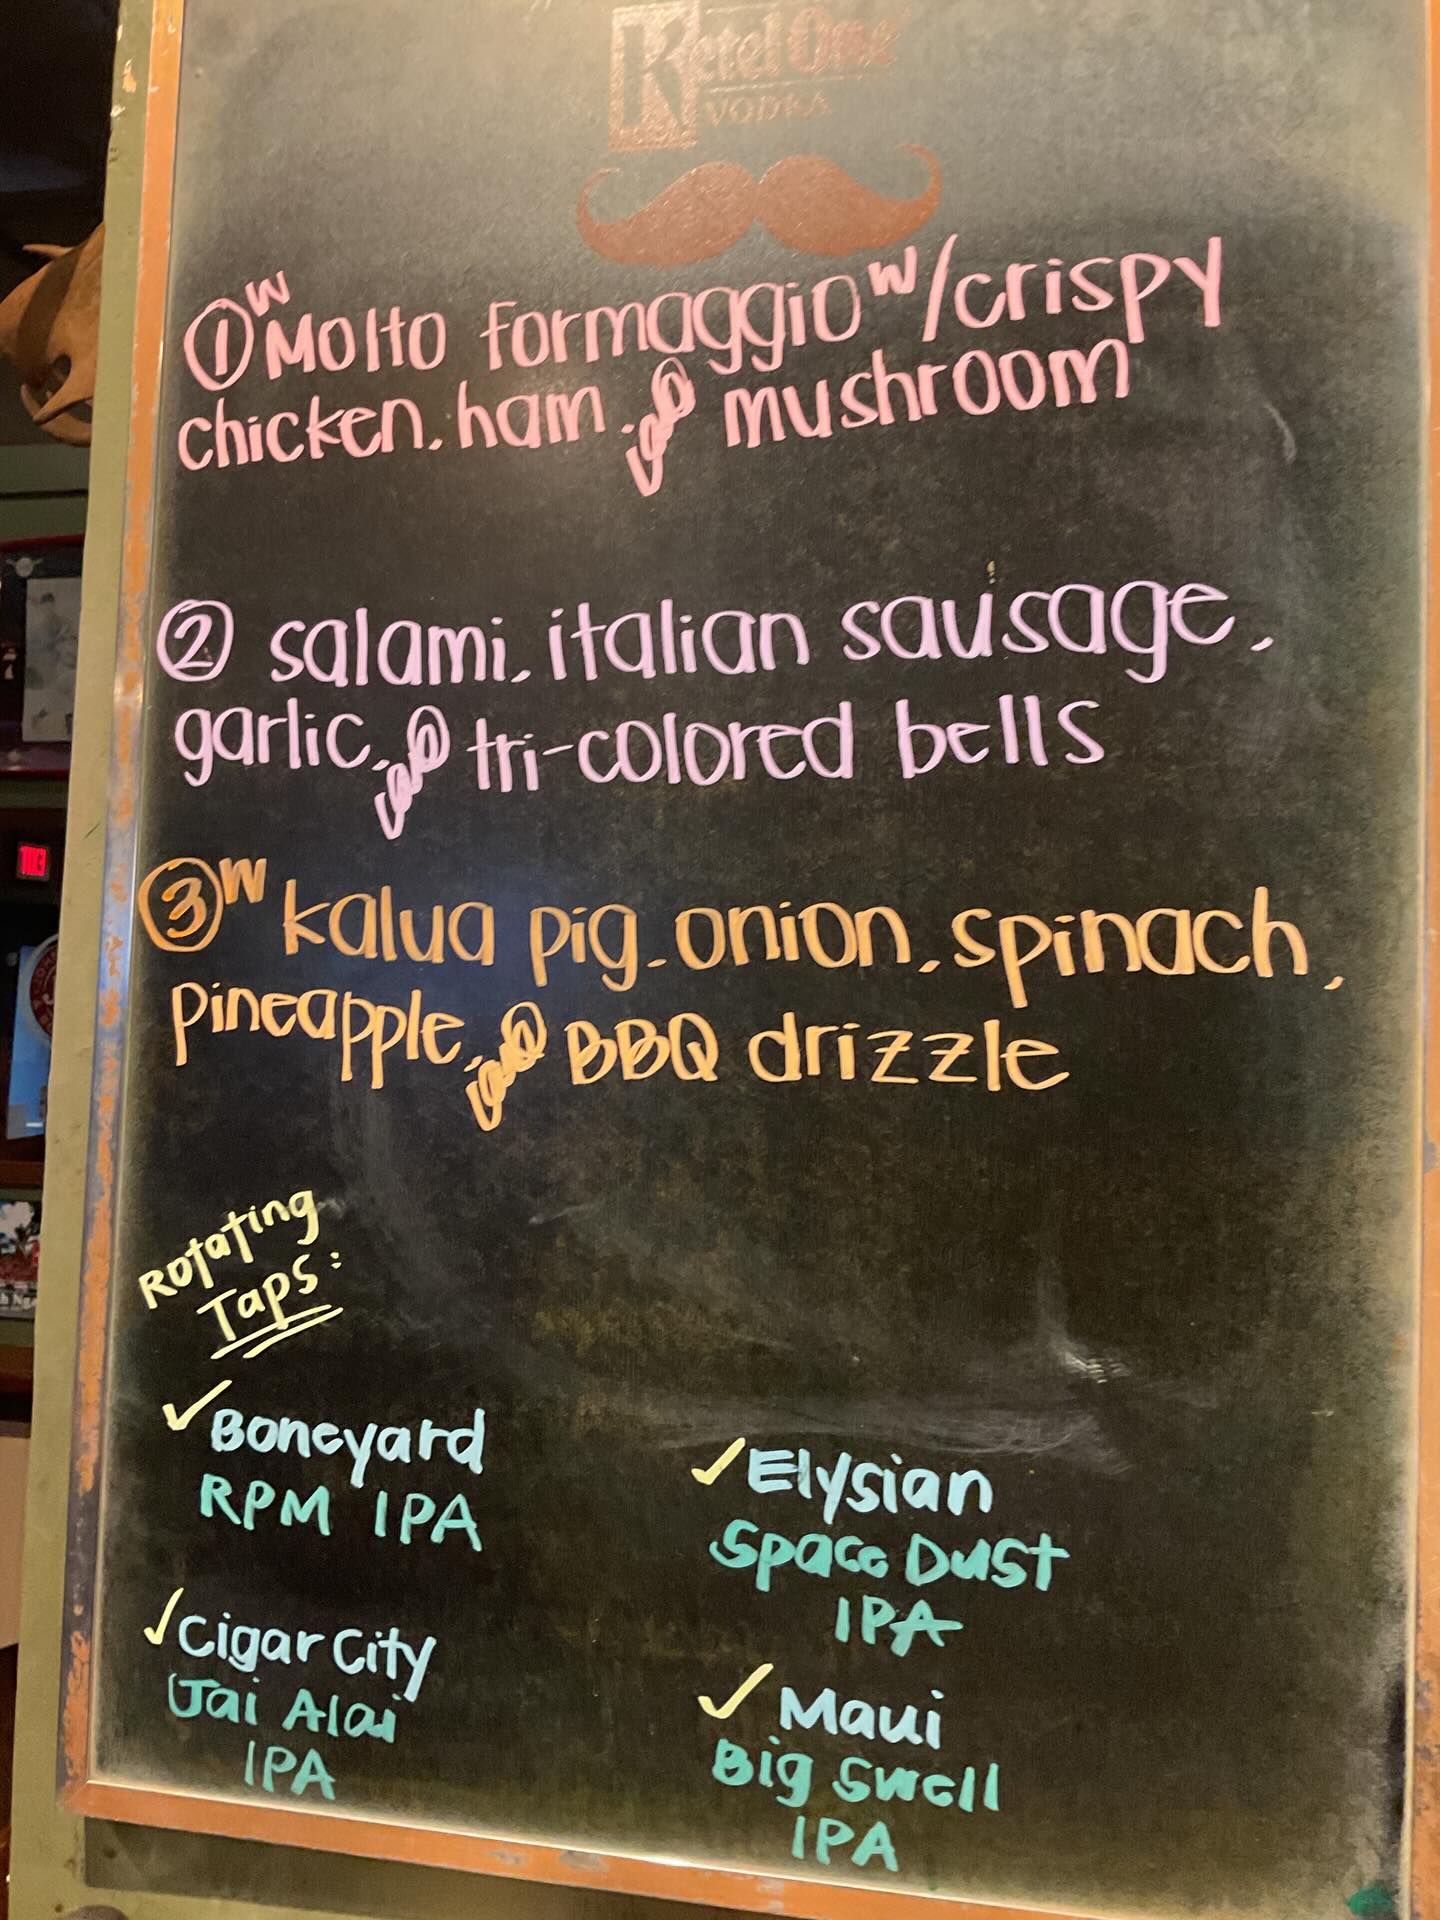 Ketel One
VODKA
① W Molto formaggio w/crispy
chicken, ham, & mushroom
② salami, italian sausage,
garlic, & tri-colored bells
③ W kalua pig, onion, spinach,
pineapple, & BBQ drizzle
Rotating
Taps:
✓ Boneyard
RPM IPA
✓ Elysian
Space Dust
IPA
✓ Cigar City
Jai Alai
IPA
✓ Maui
Big Swell
IPA